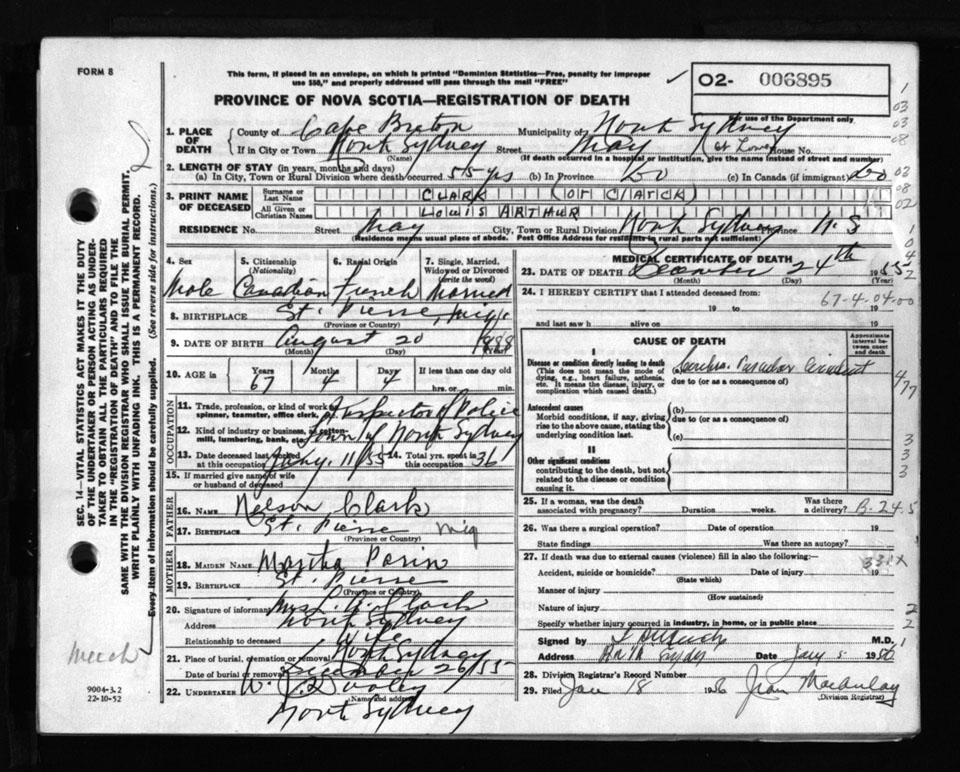 FORM 8
This form, if placed in an envelope, on which is printed "Dominion Statistics—Free, penalty for improper
use $50," and properly addressed will pass through the mail "FREE"
PROVINCE OF NOVA SCOTIA—REGISTRATION OF DEATH
02- 006895
For use of the Department only
1. PLACE OF DEATH { County of Cape Breton Municipality of North Sydney
If in City or Town North Sydney Street May House No.
(Name) (If death occurred in a hospital or institution, give the name instead of street and number)
2. LENGTH OF STAY (in years, months and days)
(a) In City, Town or Rural Division where death occurred 55 yrs (b) In Province Do (c) In Canada (if immigrant) Do
3. PRINT NAME OF DECEASED { Surname or Last Name CLARK (OR CLARCK)
All Given or Christian Names LOUIS ARTHUR
RESIDENCE No. Street May City, Town or Rural Division North Sydney Province N. S
(Residence means usual place of abode. Post Office Address for residents in rural parts not sufficient)
4. Sex Male
5. Citizenship (Nationality) Canadian
6. Racial Origin French
7. Single, Married, Widowed or Divorced (write the word) Married
8. BIRTHPLACE St. Pierre, Miq.
(Province or Country)
9. DATE OF BIRTH August 20 1888
(Month) (Day) (Year)
10. AGE in { Years 67 Months 4 Days 4 If less than one day old
hrs. or min.
OCCUPATION
11. Trade, profession, or kind of work as spinner, teamster, office clerk, Inspector of Police
12. Kind of industry or business, as cotton-mill, lumbering, bank, etc. Town of North Sydney
13. Date deceased last worked at this occupation 11/55 14. Total yrs. spent in this occupation 36
15. If married give name of wife or husband of deceased
FATHER
16. NAME Nelson Clark
17. BIRTHPLACE St. Pierre Miq
MOTHER
18. MAIDEN NAME Martha
19. BIRTHPLACE St. Pierre
(Province or Country)
20. Signature of informant Mrs. Clark
Address North Sydney
Relationship to deceased Wife
21. Place of burial, cremation or removal North Sydney
Date of burial or removal December 26/55
22. UNDERTAKER
(Name and address)
North Sydney
MEDICAL CERTIFICATE OF DEATH
23. DATE OF DEATH December 24th 1955
(Month) (Day) (Year)
24. I HEREBY CERTIFY that I attended deceased from:
67-4-04-00
19 to 19
and last saw h alive on 19
CAUSE OF DEATH
Approximate interval between onset and death
I
Disease or condition directly leading to death
(This does not mean the mode of dying, e.g., heart failure, asthenia, etc. It means the disease, injury, or complication which caused death.)
Vascular Accident
due to (or as a consequence of)
Antecedent causes
Morbid conditions, if any, giving rise to the above cause, stating the underlying condition last.
(b)
due to (or as a consequence of)
(c)
II
Other significant conditions
contributing to the death, but not related to the disease or condition causing it.
25. If a woman, was the death associated with pregnancy? Duration weeks. Was there a delivery? B-24.5
26. Was there a surgical operation? Date of operation 19
State findings Was there an autopsy?
27. If death was due to external causes (violence) fill in also the following:— 331X
Accident, suicide or homicide? Date of injury 19
(State which)
Manner of injury
(How sustained)
Nature of injury
Specify whether injury occurred in industry, in home, or in public place
Signed by M.D.
Address Date Jany 5 1956
28. Division Registrar's Record Number
29. Filed Jan 18 1956 Jean Macaulay
(Division Registrar)
SEC. 14—VITAL STATISTICS ACT MAKES IT THE DUTY
OF THE UNDERTAKER OR PERSON ACTING AS UNDER-
TAKER TO OBTAIN ALL THE PARTICULARS REQUIRED
IN THE "REGISTRATION OF DEATH" AND TO FILE THE
SAME WITH THE DIVISION REGISTRAR WHO SHALL ISSUE THE BURIAL PERMIT.
WRITE PLAINLY WITH UNFADING INK. THIS IS A PERMANENT RECORD.
Every item of information should be carefully supplied. (See reverse side for instructions.)
9004-3.2
22-10-52